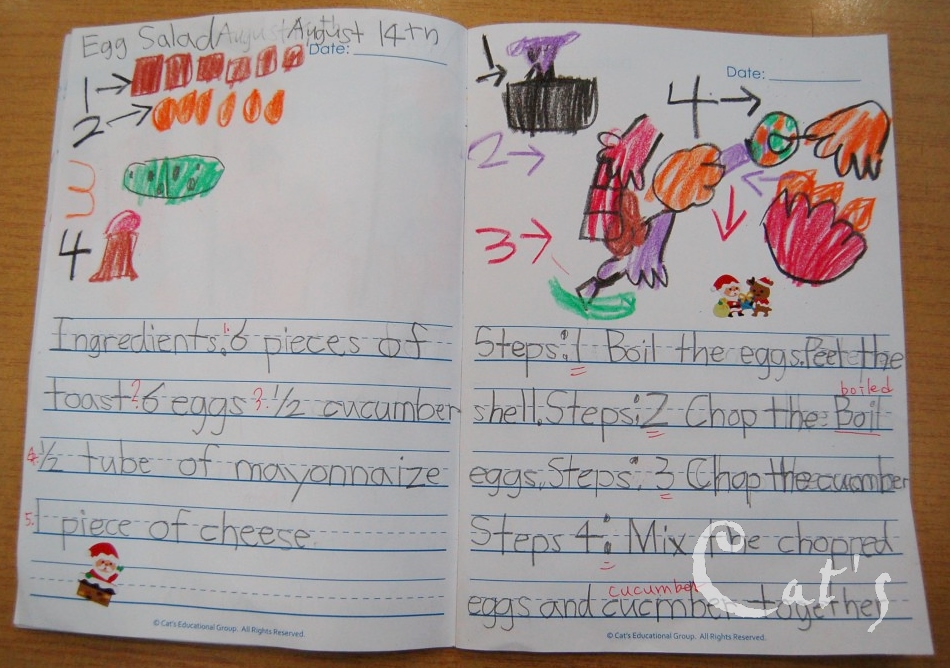 Egg Salad August August 14th
Date:
1→
2→
3
4
Ingredients: 1. 6 pieces of
toast 2. 6 eggs 3. 1/2 cucumber
4. 1/2 tube of mayonnaize
5. 1 piece of cheese.
© Cat's Educational Group. All Rights Reserved.
Date:
1
2→
3→
4→
Steps: 1 Boil the eggs. Peel the
boiled
shell. Steps: 2 Chop the Boil
eggs. Steps: 3 Chop the cucmber
Steps 4: Mix the chopped
cucumber
eggs and cucmber together
© Cat's Educational Group. All Rights Reserved.
Cat's